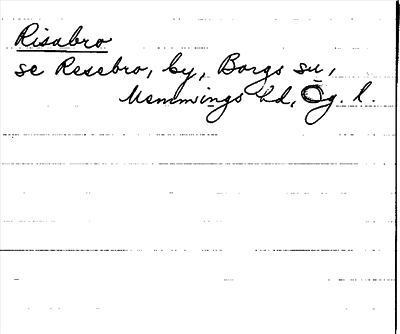 Risabro
se Resebro, by, Borgs sn,
Memmings hd, Ög. l.